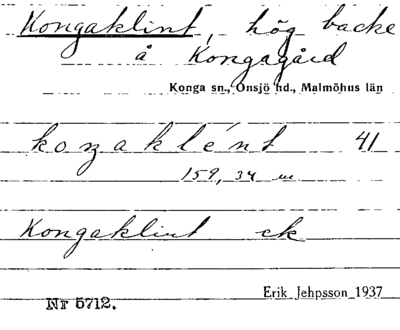 Kongaklint, hög backe
å Kongagård
Konga sn., Onsjö hd., Malmöhus län
koŋaklént 41
159, 34 m
Kongaklint ek
Erik Jehpsson 1937
Nr 5712.